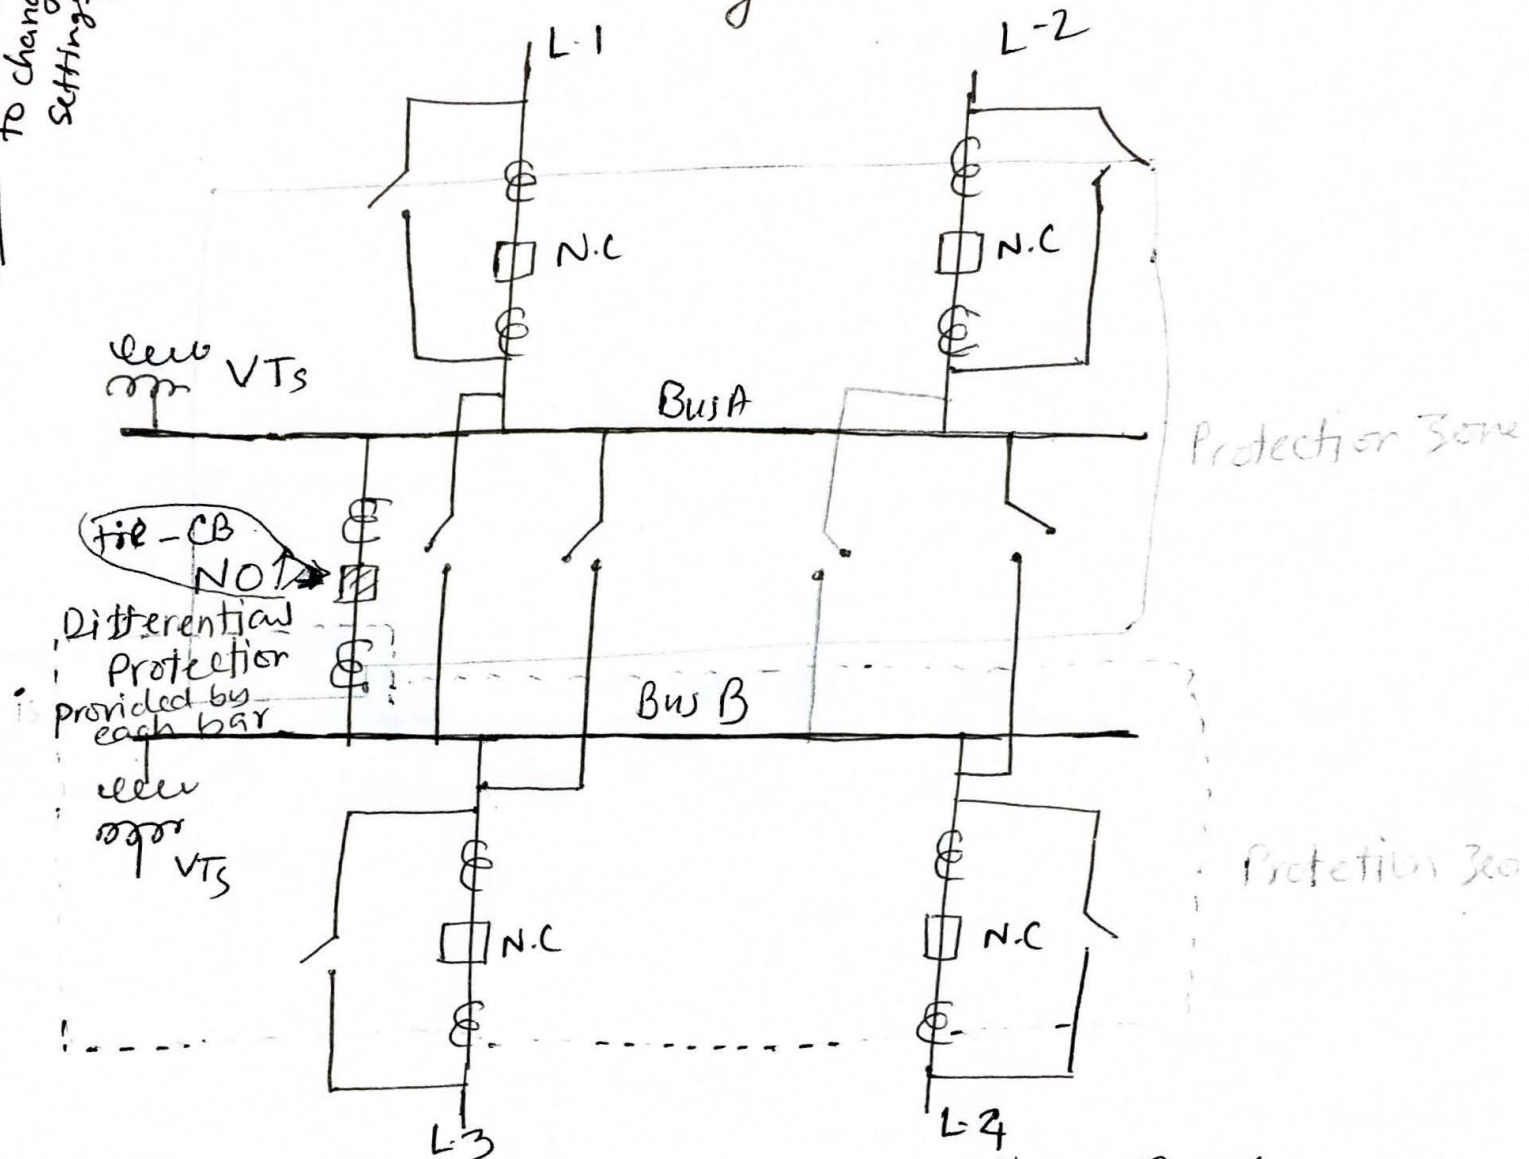 to chang
settings
L-1
L-2
N.C
N.C
VTs
Bus A
Protection Zone
tie-CB
NO
Differential
Protection
provided by
each bar
is
Bus B
VTs
Protetion Zeo
N.C
N.C
L-3
L-4